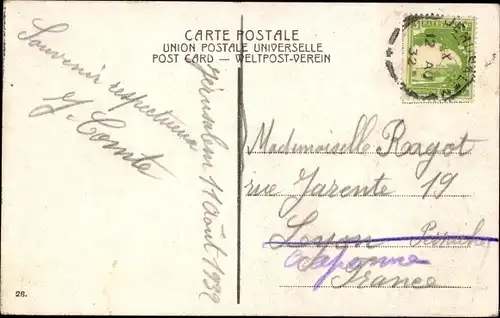 CARTE POSTALE
UNION POSTALE UNIVERSELLE
POST CARD — WELTPOST-VEREIN
Souvenir respectueux
J. Comte
Jérusalem 11 août 1932
JERUSALEM
12 AU
32
Mademoiselle Ragot
rue Jarente 19
Lyon Perrache
France
28.